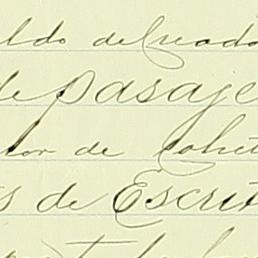 ldo del creado
de pasaje
or de Cohit
s de Escrit